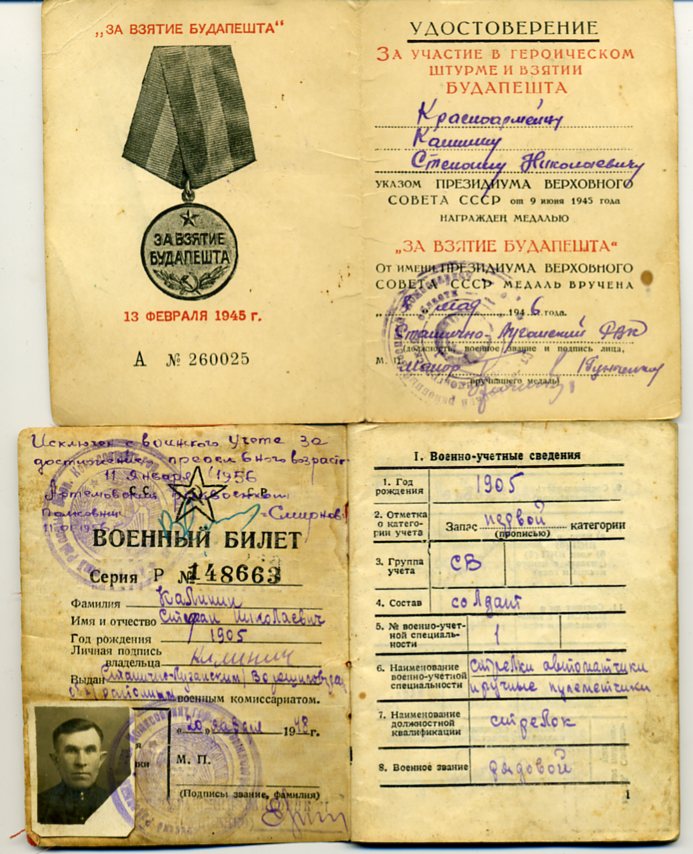 „ЗА ВЗЯТИЕ БУДАПЕШТА“
ЗА ВЗЯТИЕ
БУДАПЕШТА
13 ФЕВРАЛЯ 1945 г.
А № 260025
УДОСТОВЕРЕНИЕ
ЗА УЧАСТИЕ В ГЕРОИЧЕСКОМ
ШТУРМЕ И ВЗЯТИИ
БУДАПЕШТА
Красноармейцу
Калинину
Степану Николаевичу
УКАЗОМ ПРЕЗИДИУМА ВЕРХОВНОГО
СОВЕТА СССР от 9 июня 1945 года
НАГРАЖДЕН МЕДАЛЬЮ
„ЗА ВЗЯТИЕ БУДАПЕШТА“
От имени ПРЕЗИДИУМА ВЕРХОВНОГО
СОВЕТА СССР МЕДАЛЬ ВРУЧЕНА
мая 1946 года.
Станично-Луганский РВК
(должность, военное звание и подпись лица,
М. П. Майор
вручившего медаль)
Исключен с воинского учета за
достижением предельного возраст
11 января 1956
Артемовский
Полковник Смирнов
С. С.
ВОЕННЫЙ БИЛЕТ
Серия Р № 148663
Фамилия Калинин
Имя и отчество Стефан Николаевич
Год рождения 1905
Личная подпись
владельца Калинин
Выдан Станично-Луганским Ворошиловград
районным военным комиссариатом.
„20“ 1948 г.
М. П.
(Подпись, звание, фамилия)
I. Военно-учетные сведения
1. Год рождения 1905
2. Отметка о категории учета Запас первой категории
(прописью)
3. Группа учета СВ
4. Состав солдат
5. № военно-учетной специальности 1
6. Наименование военно-учетной специальности стрелки автоматчики
и ручные пулеметчики
7. Наименование должностной квалификации стрелок
8. Военное звание рядовой
1